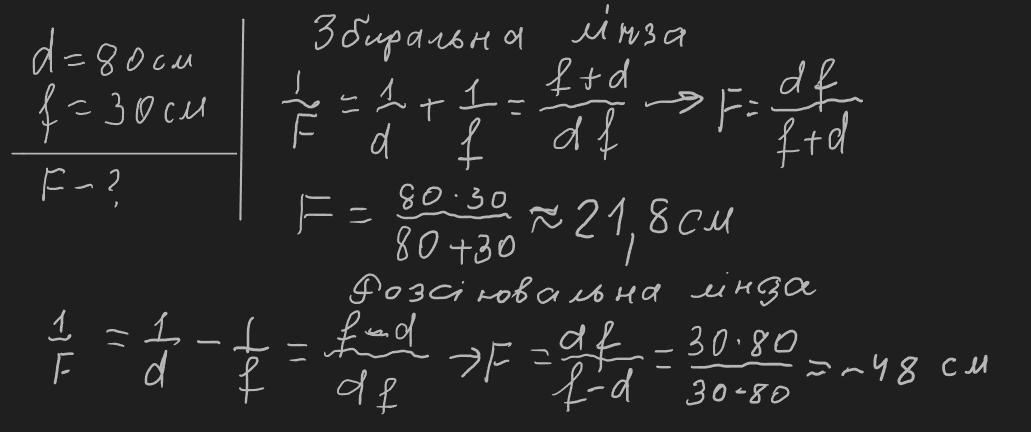 d = 80 см
f = 30 см
F - ?
Збиральна лінза
1/F = 1/d + 1/f = (f+d)/(d f) → F = (d f)/(f+d)
F = (80 · 30)/(80 + 30) ≈ 21,8 см
Розсіювальна лінза
1/F = 1/d - 1/f = (f-d)/(d f) → F = (d f)/(f-d) = (30 · 80)/(30-80) = -48 см